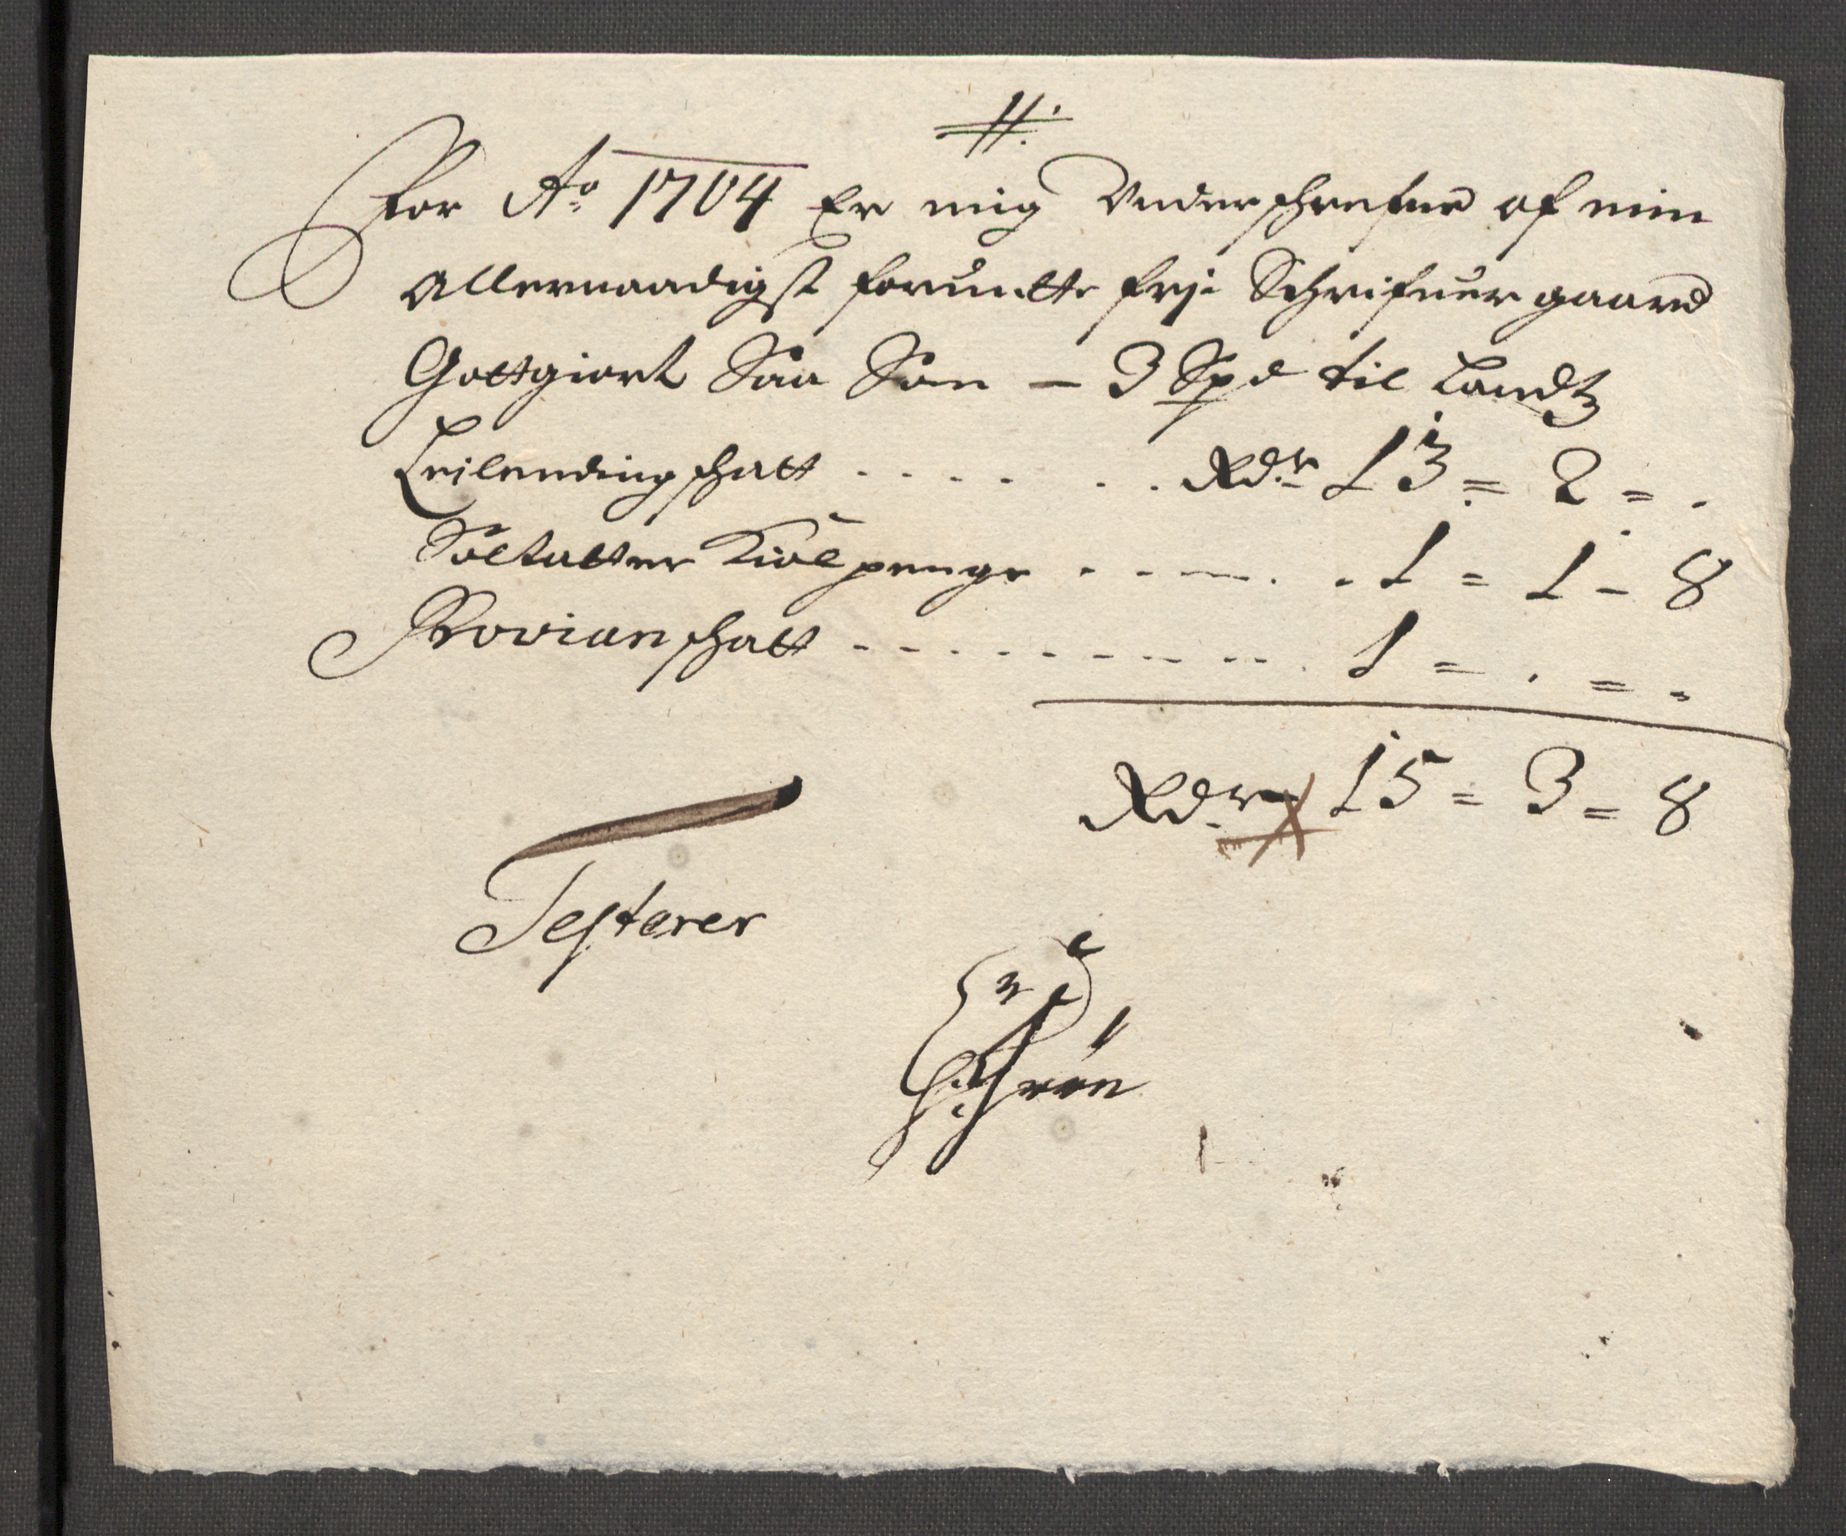 #.
For Ao 1704 Er mig Underschrefne af min
Allernaadigst forundte frj Schrifuer gaard
Gottgiort Saa Som – 3 Spd til Landtz
Leilending schatt . . . . . . Rdr 13 = 2 = .
Soldatter Kiol penge . . . . . 1 = 1 – 8
Provianschatt . . . . . . . . 1 = . = -
Rdr 15 = 3 = 8
Testerer